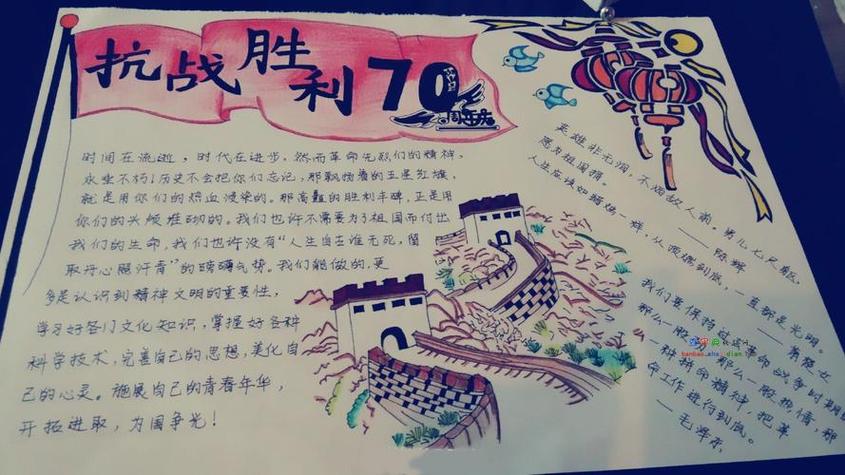 抗战胜利70
周年庆
时间在流逝，时代在进步。然而革命先烈们的精神，
永垂不朽！历史不会把你们忘记，那飘扬着的五星红旗，
就是用你们的热血浸染的。那高矗的胜利丰碑，正是用
你们的头颅堆砌的。我们也许不需要为了祖国而付出
我们的生命，我们也许没有“人生自古谁无死，留
取丹心照汗青”的磅礴气势。我们能做的，更
多是认识到精神文明的重要性，
学习好各门文化知识，掌握好各种
科学技术，完善自己的思想，美化自
己的心灵。施展自己的青春年华，
开拓进取，为国争光！
英雄非无泪，不洒敌人前。男儿七尺躯，
愿为祖国捐。
——陈辉
人生应该如蜡烛一样，从顶燃到底，一直都是光明。
——萧楚女
我们要保持过去革命战争时期的
那么一股劲，那么一股热情，那
一种拼命精神，把革
命工作进行到底。
——毛泽东